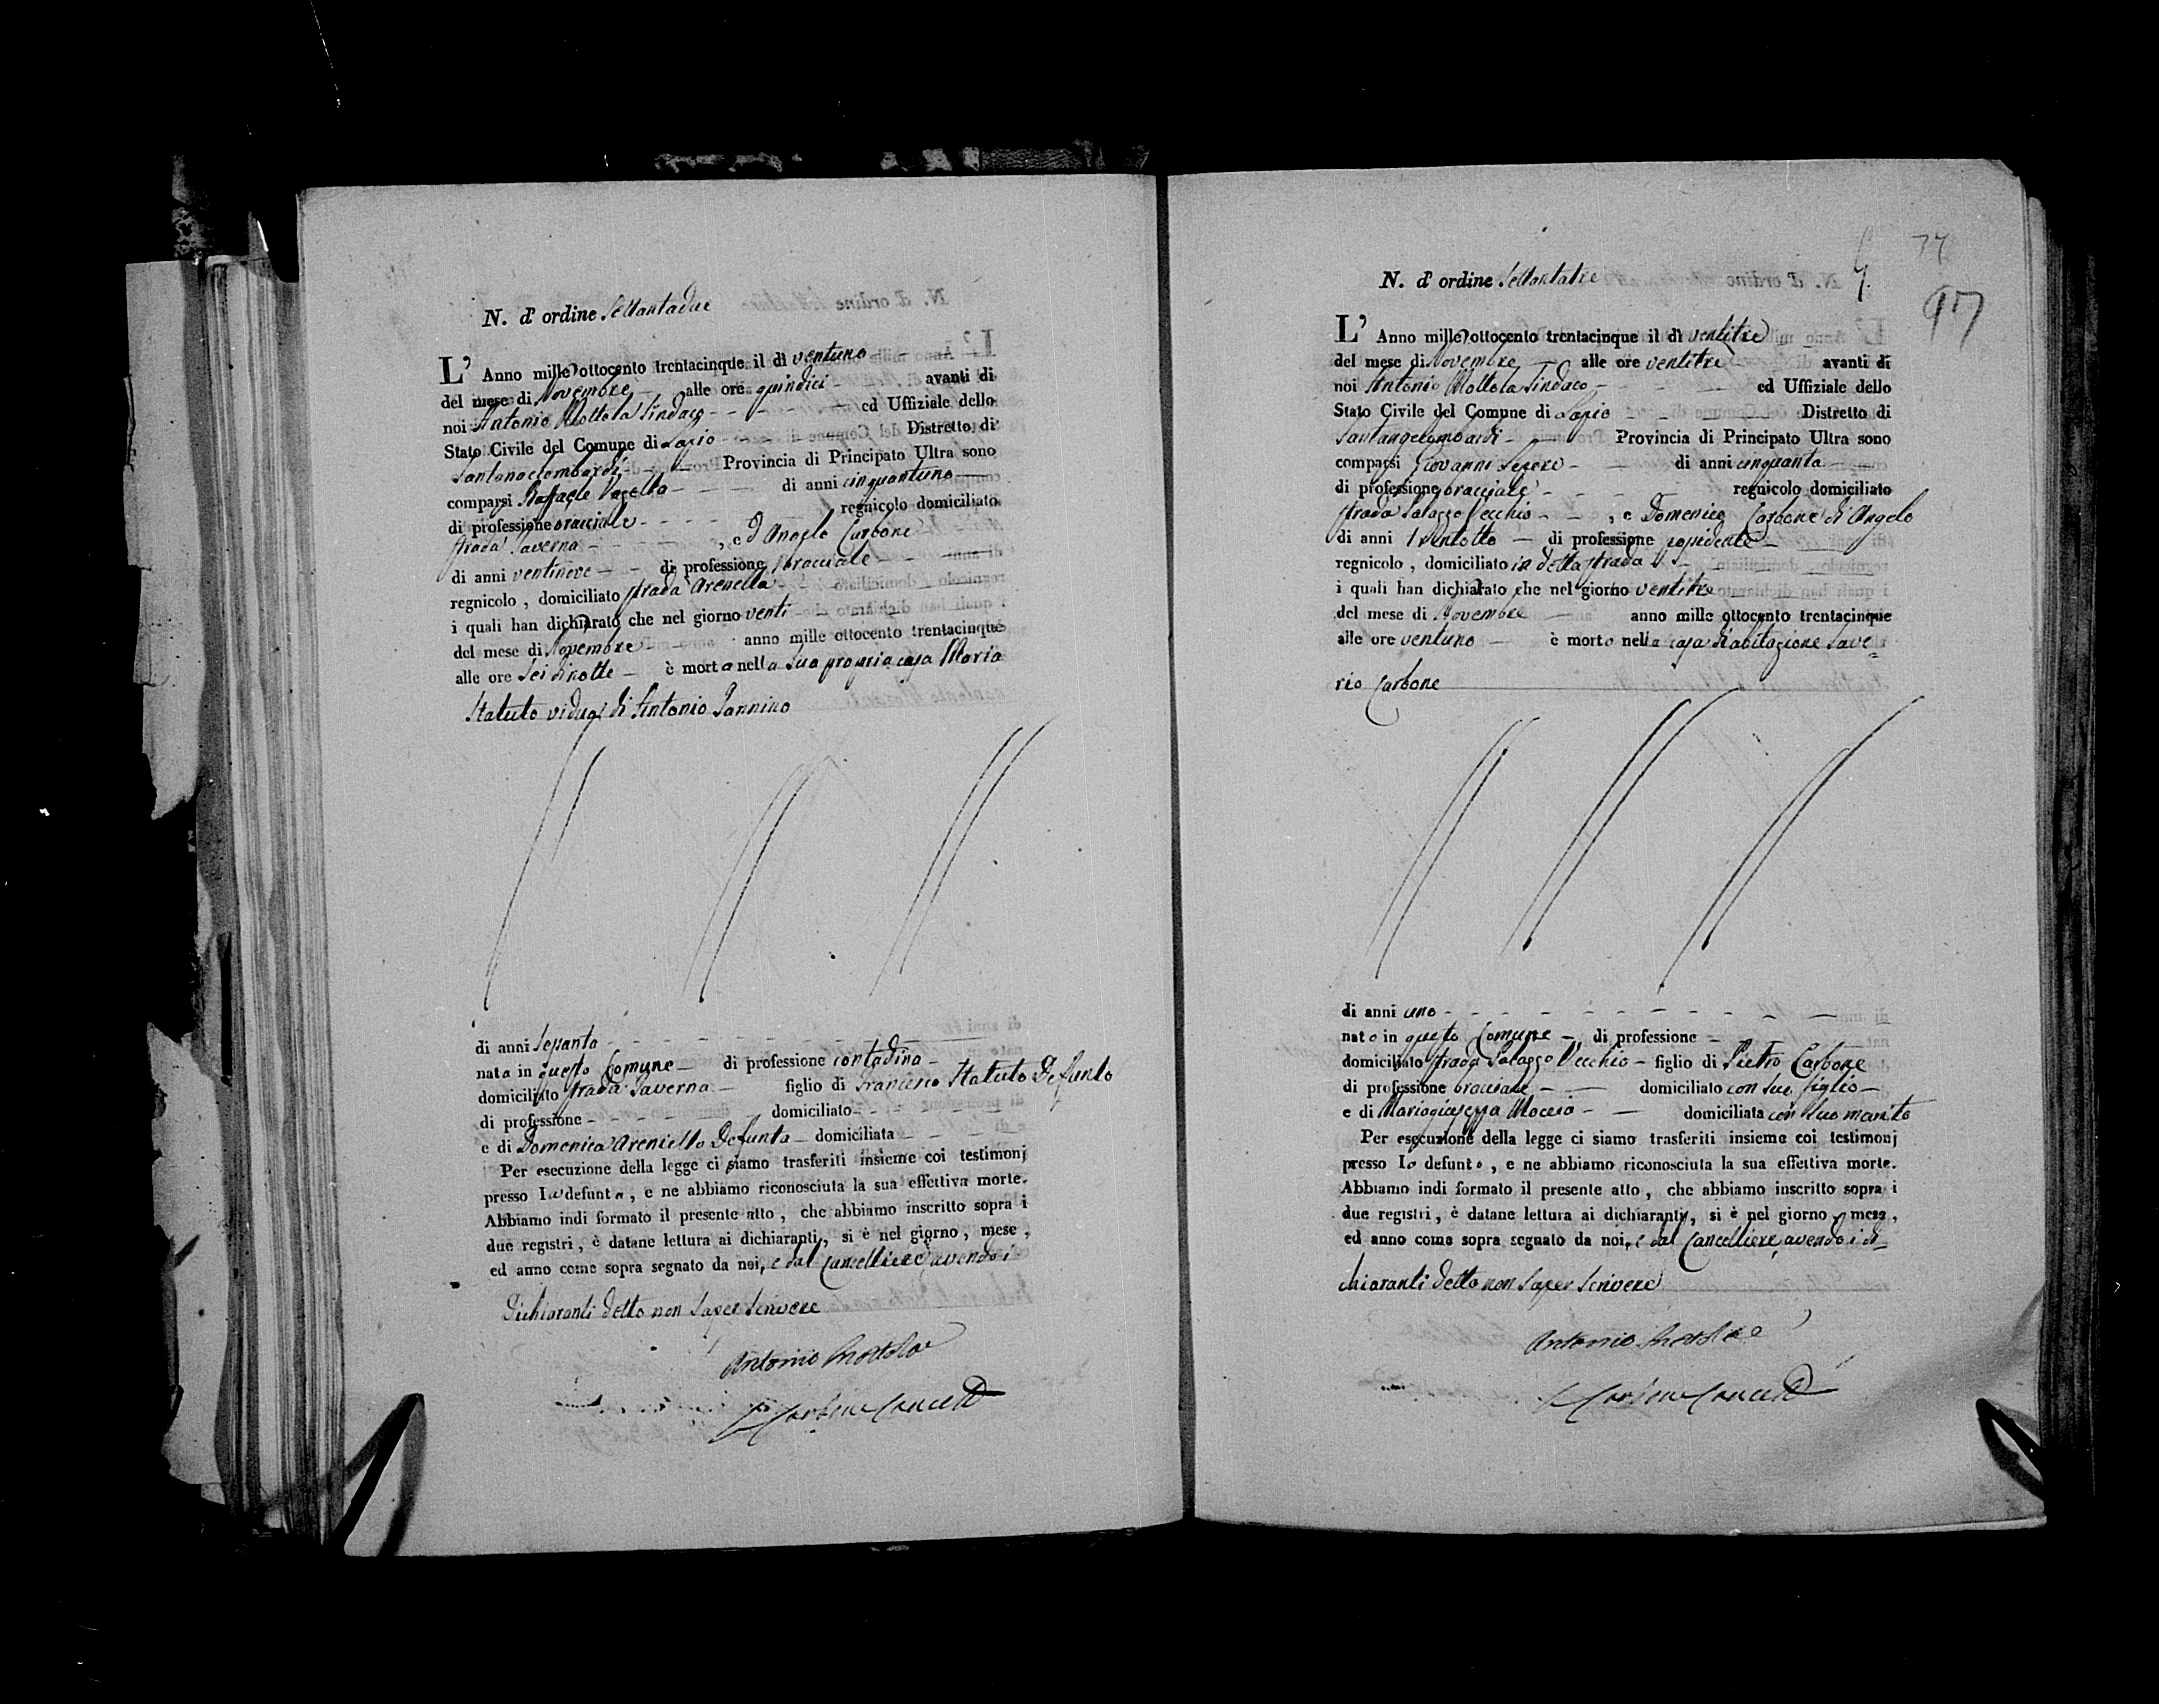 N. d'ordine Settantadue
L' Anno mille ottocento trentacinque il di ventuno
del mese di Novembre alle ore quindici avanti di
noi Antonio Mottola Sindaco ed Uffiziale dello
Stato Civile del Comune di Lapio Distretto di
Santangelombardi Provincia di Principato Ultra sono
comparsi Raffaele Vacella di anni cinquantuno
di professione bracciale regnicolo domiciliato
strada Taverna , e D Angelo Carbone
di anni ventinove di professione bracciale
regnicolo , domiciliato strada Arenella
i quali han dichiarato che nel giorno venti
del mese di Novembre anno mille ottocento trentacinque
alle ore Sei di notte è morta nella sua propria casa Maria
Statuto vidua di Antonio Iannino
di anni Sessanta
nata in questo Comune di professione contadina
domiciliato strada Taverna figlio di Francesco Statuto Defunto
di professione domiciliato
e di Domenica Areniello Defunta domiciliata
Per esecuzione della legge ci siamo trasferiti insieme coi testimonj
presso la defunta , e ne abbiamo riconosciuta la sua effettiva morte.
Abbiamo indi formato il presente atto , che abbiamo inscritto sopra i
due registri , è datane lettura ai dichiaranti , si è nel giorno , mese ,
ed anno come sopra segnato da noi, e dal Cancelliere avendo i
Dichiaranti detto non saper scrivere
Antonio Mottola
Carbone Cancell
34
97
N. d'ordine Settantatre
L' Anno mille ottocento trentacinque il di ventitre
del mese di Novembre alle ore ventitre avanti di
noi Antonio Mottola Sindaco ed Uffiziale dello
Stato Civile del Comune di Lapio Distretto di
Santangelombardi Provincia di Principato Ultra sono
comparsi Giovanni Lepore di anni cinquanta
di professione bracciale regnicolo domiciliato
strada Palazzo Vecchio , e Domenico Carbone di Angelo
di anni trentotto di professione possidente
regnicolo , domiciliato in detta strada
i quali han dichiarato che nel giorno ventitre
del mese di Novembre anno mille ottocento trentacinque
alle ore ventuno è morto nella casa d'abitazione Save=
rio Carbone
di anni uno
nato in questo Comune , di professione
domiciliato strada Palazzo Vecchio figlio di Pietro Carbone
di professione bracciale domiciliato con suo figlio
e di Mariagiuseppa Moccia domiciliata con suo marito
Per esecuzione della legge ci siamo trasferiti insieme coi testimonj
presso lo defunto , e ne abbiamo riconosciuta la sua effettiva morte.
Abbiamo indi formato il presente atto , che abbiamo inscritto sopra i
due registri , è datane lettura ai dichiaranti , si è nel giorno , mese ,
ed anno come sopra segnato da noi, e dal Cancelliere, avendo i di=
chiaranti detto non saper scrivere
Antonio Mottola
Carbone Cancell